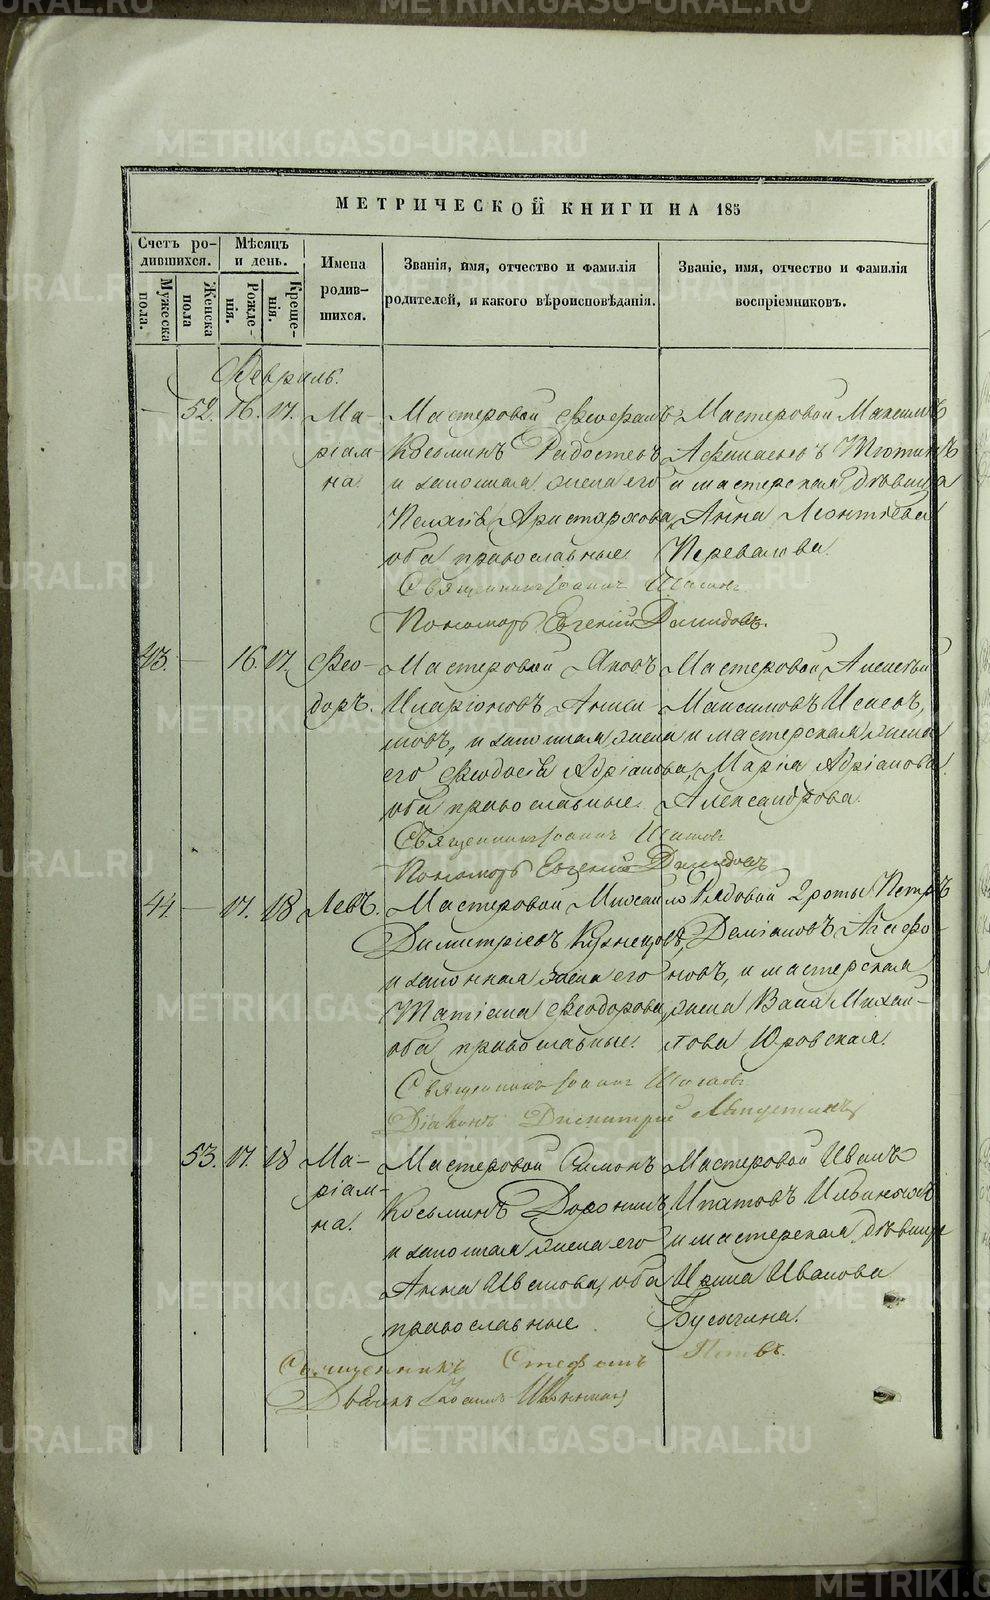 МЕТРИЧЕСКОЙ КНИГИ НА 185
Счетъ родившихся.
Мужеска пола.
Женска пола
Мѣсяцъ и день.
Рожденія.
Крещенія.
Имена родившихся.
Званія, имя, отчество и фамилія родителей, и какого вѣроисповѣданія.
Званіе, имя, отчество и фамилія воспріемниковъ.
Февраль.
— 52. 16. 17. Маріамна
Мастеровой Феофанъ
Козьминъ Радостевъ
и законная жена его
Пелагія Аристархова,
оба православные
Мастеровой Максимъ
Афанасьевъ Тютинъ
и мастерская дѣвица
Анна Леонтіева
Перевалова.
Священникъ Іоаннъ
Пономарь Евгеній Демидовъ.
43. — 16. 17. Феодоръ.
Мастеровой Яковъ
Иларіоновъ
и законная жена
его Феодосія Адріанова,
оба православные.
Мастеровой Алексѣй
Максимовъ
и мастерская жена
Марія Адріанова
Александрова.
Священникъ Іоаннъ
Пономарь Евгеній Демидовъ
44. — 17. 18 Левъ.
Мастеровой Михаило
Димитріевъ Кузнецовъ,
и законная жена его
Татіана Феодорова,
оба православные.
Рядовой 2 роты Петръ
Деміановъ Агафоновъ,
и мастерская
жена Васа Михайлова
Юровская.
Священникъ Іоаннъ
Діаконъ Димитрій
53. 17. 18 Маріамна.
Мастеровой Симонъ
Козьминъ Доронинъ,
и законная жена его
Анна Иванова, оба
православные
Мастеровой Иванъ
Ипатовъ
и мастерская дѣвица
Ирина Иванова
Бусыгина.
Священникъ Стефанъ
Діаконъ Іоаннъ
METRIKI.GASO-URAL.RU